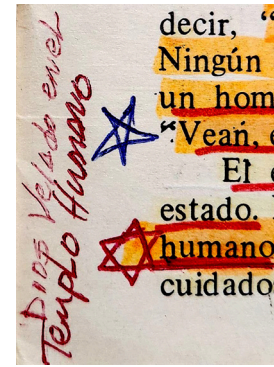 Dios Velado en el
Templo Humano
decir, “
Ningún
un hom
“Vean, 
El
estado.
humano
cuidado